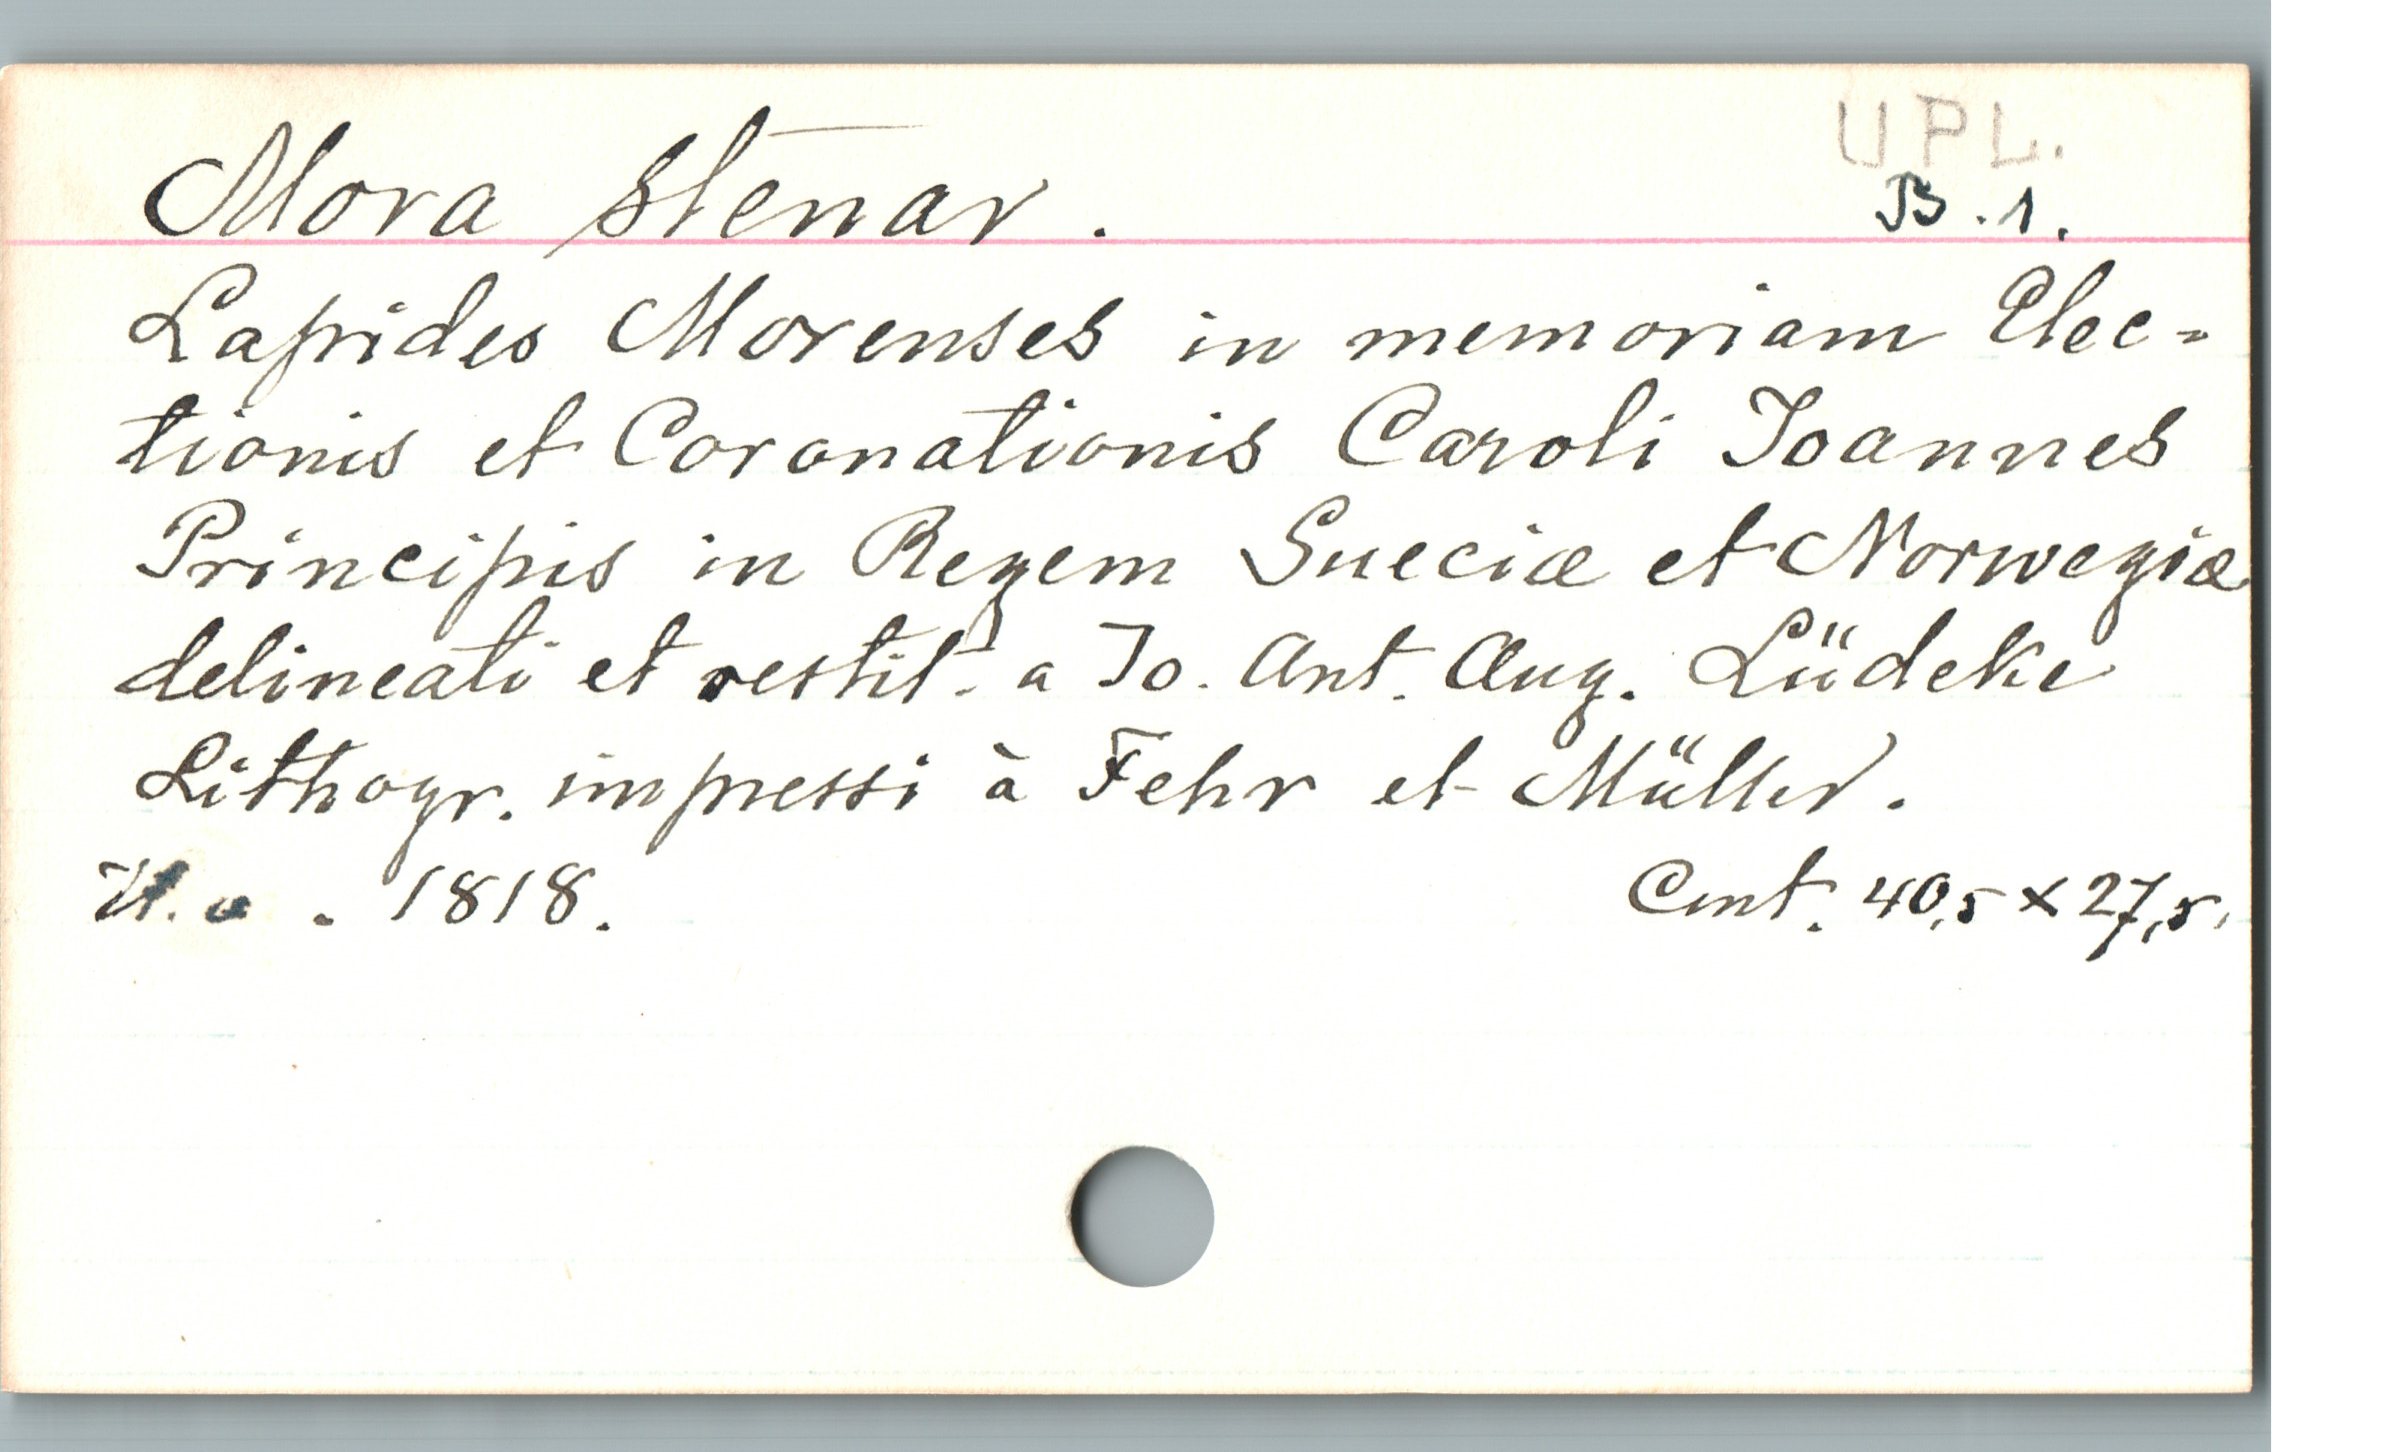 UPL.
Mora stenar.
B.1.
Lapides Morenses in memoriam Elec-
tionis et Coronationis Caroli Joannes
Principis in Regem Sueciæ et Norwegiæ
delineati et restit. a Jo. Ant. Aug. Lüdeke
Lithogr. impressi à Fehr et Müller.
U. o. 1818.
Cmt. 40,5 x 27,5.